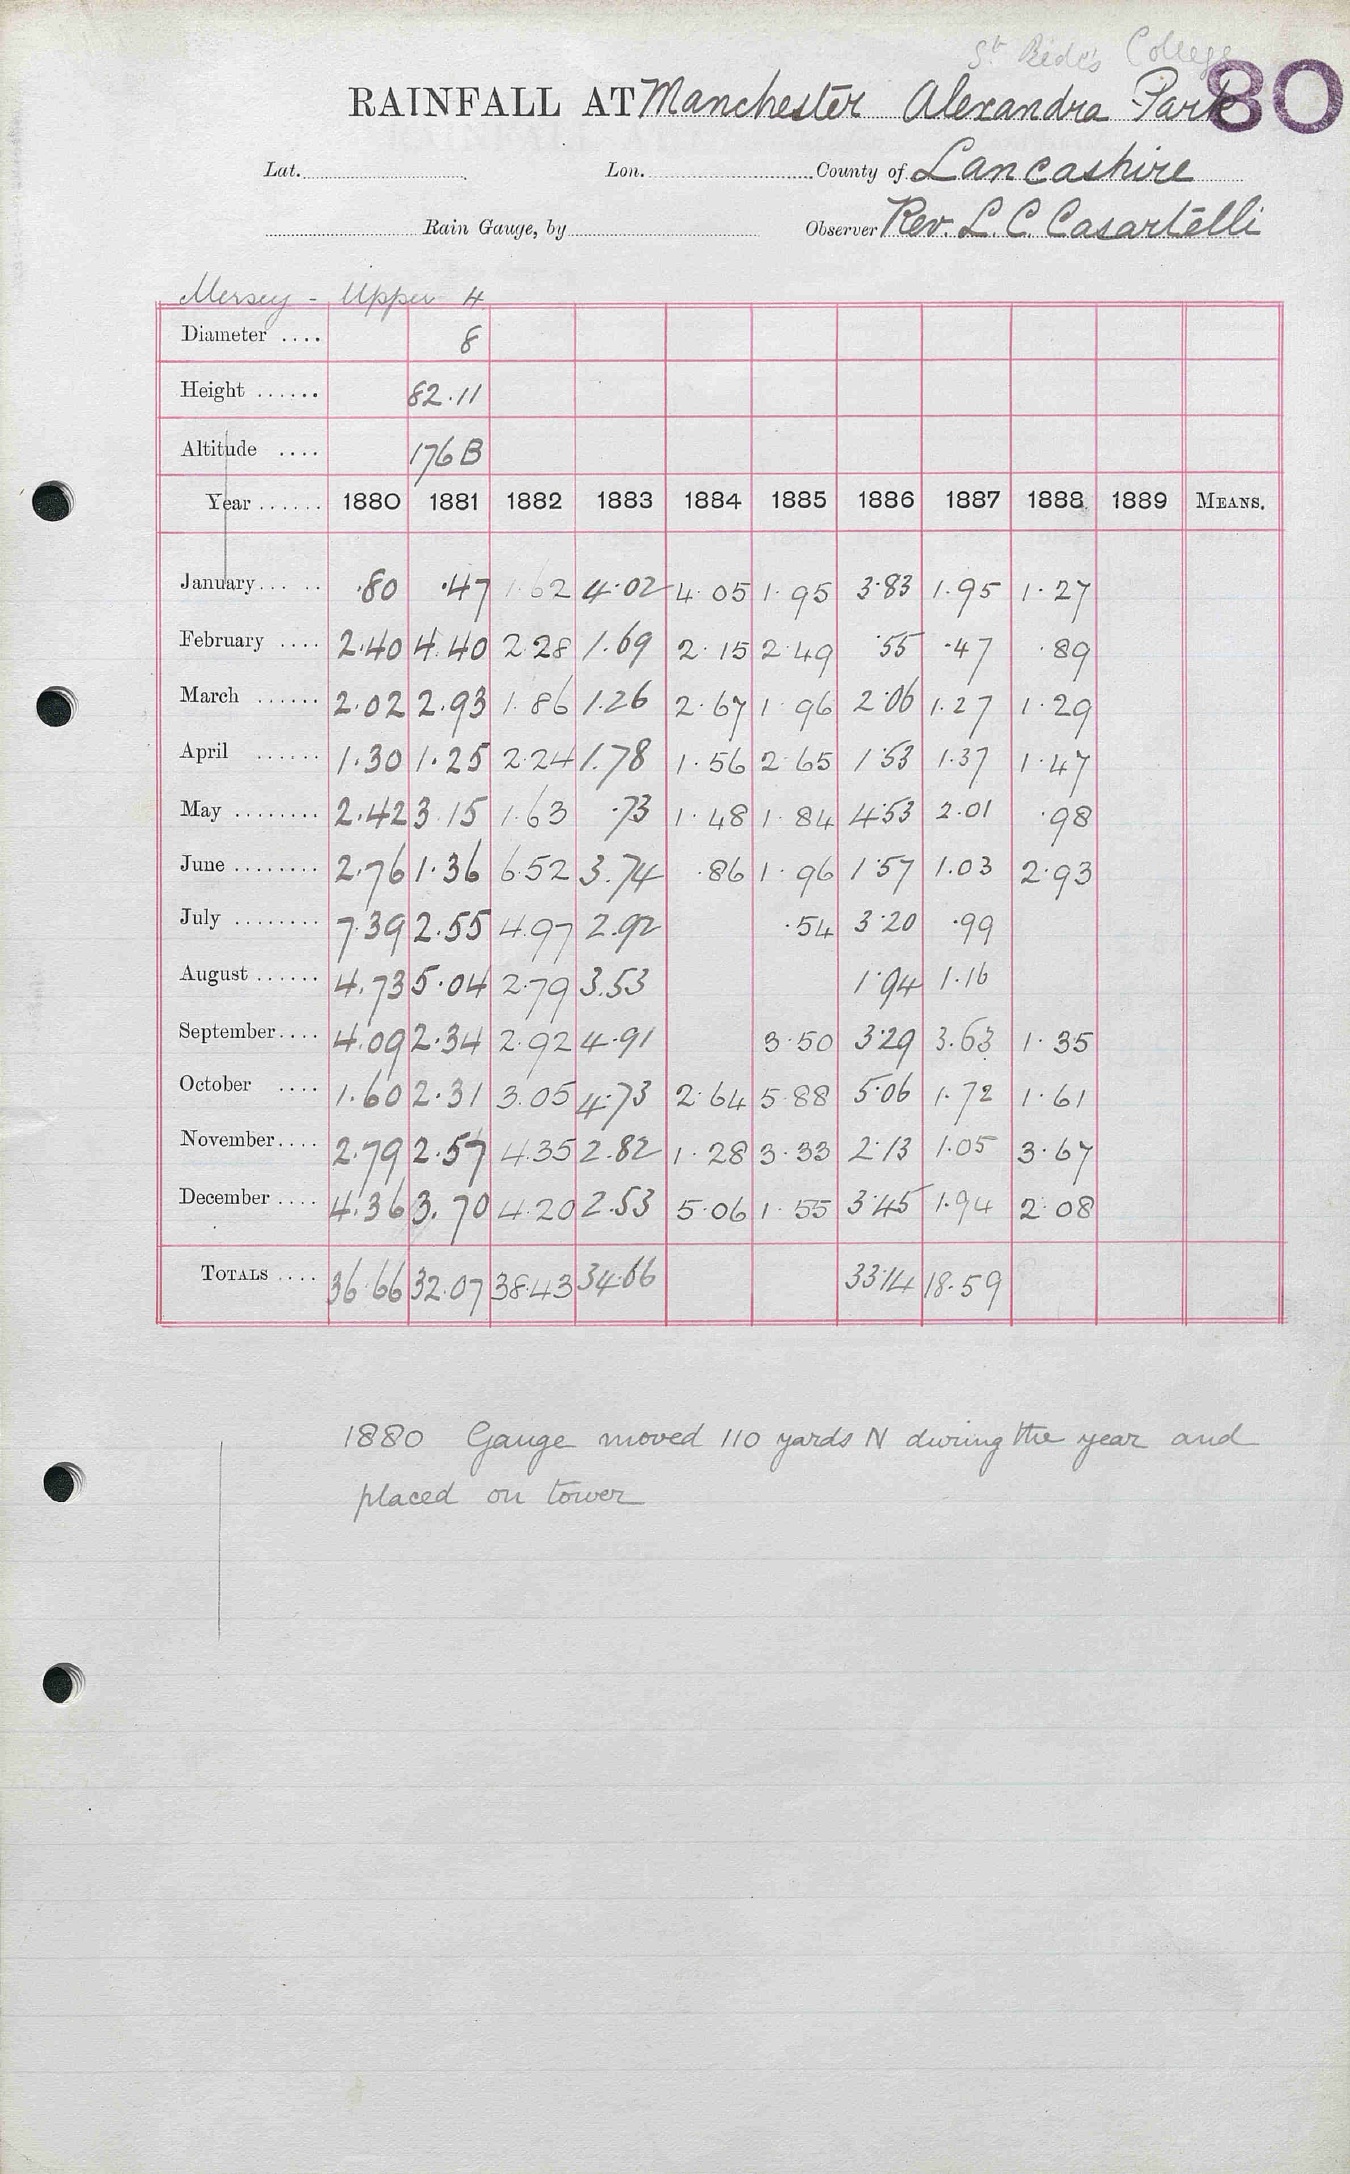 St Bede's College
RAINFALL AT Manchester Alexandra Park 80
Lat. Lon. County of Lancashire
Rain Gauge, by Observer Rev. L. C. Casartelli
Mersey - Upper 4
Diameter .... 8
Height ...... 82.11
Altitude .... 176 B
Year ...... 1880 1881 1882 1883 1884 1885 1886 1887 1888 1889 MEANS.
January... .. .80 .47 1.62 4.02 4.05 1.95 3.83 1.95 1.27
February .... 2.40 4.40 2.28 1.69 2.15 2.49 .55 .47 .89
March ...... 2.02 2.93 1.86 1.26 2.67 1.96 2.06 1.27 1.29
April ...... 1.30 1.25 2.24 1.78 1.56 2.65 1.53 1.37 1.47
May ........ 2.42 3.15 1.63 .73 1.48 1.84 4.53 2.01 .98
June ........ 2.76 1.36 6.52 3.74 .86 1.96 1.57 1.03 2.93
July ........ 7.39 2.55 4.97 2.92 .54 3.20 .99
August ...... 4.73 5.04 2.79 3.53 1.94 1.16
September.... 4.09 2.34 2.92 4.91 3.50 3.29 3.63 1.35
October .... 1.60 2.31 3.05 4.73 2.64 5.88 5.06 1.72 1.61
November.... 2.79 2.57 4.35 2.82 1.28 3.33 2.13 1.05 3.67
December .... 4.36 3.70 4.20 2.53 5.06 1.55 3.45 1.94 2.08
TOTALS .... 36.66 32.07 38.43 34.66 33.14 18.59
1880 Gauge moved 110 yards N during the year and
placed on tower